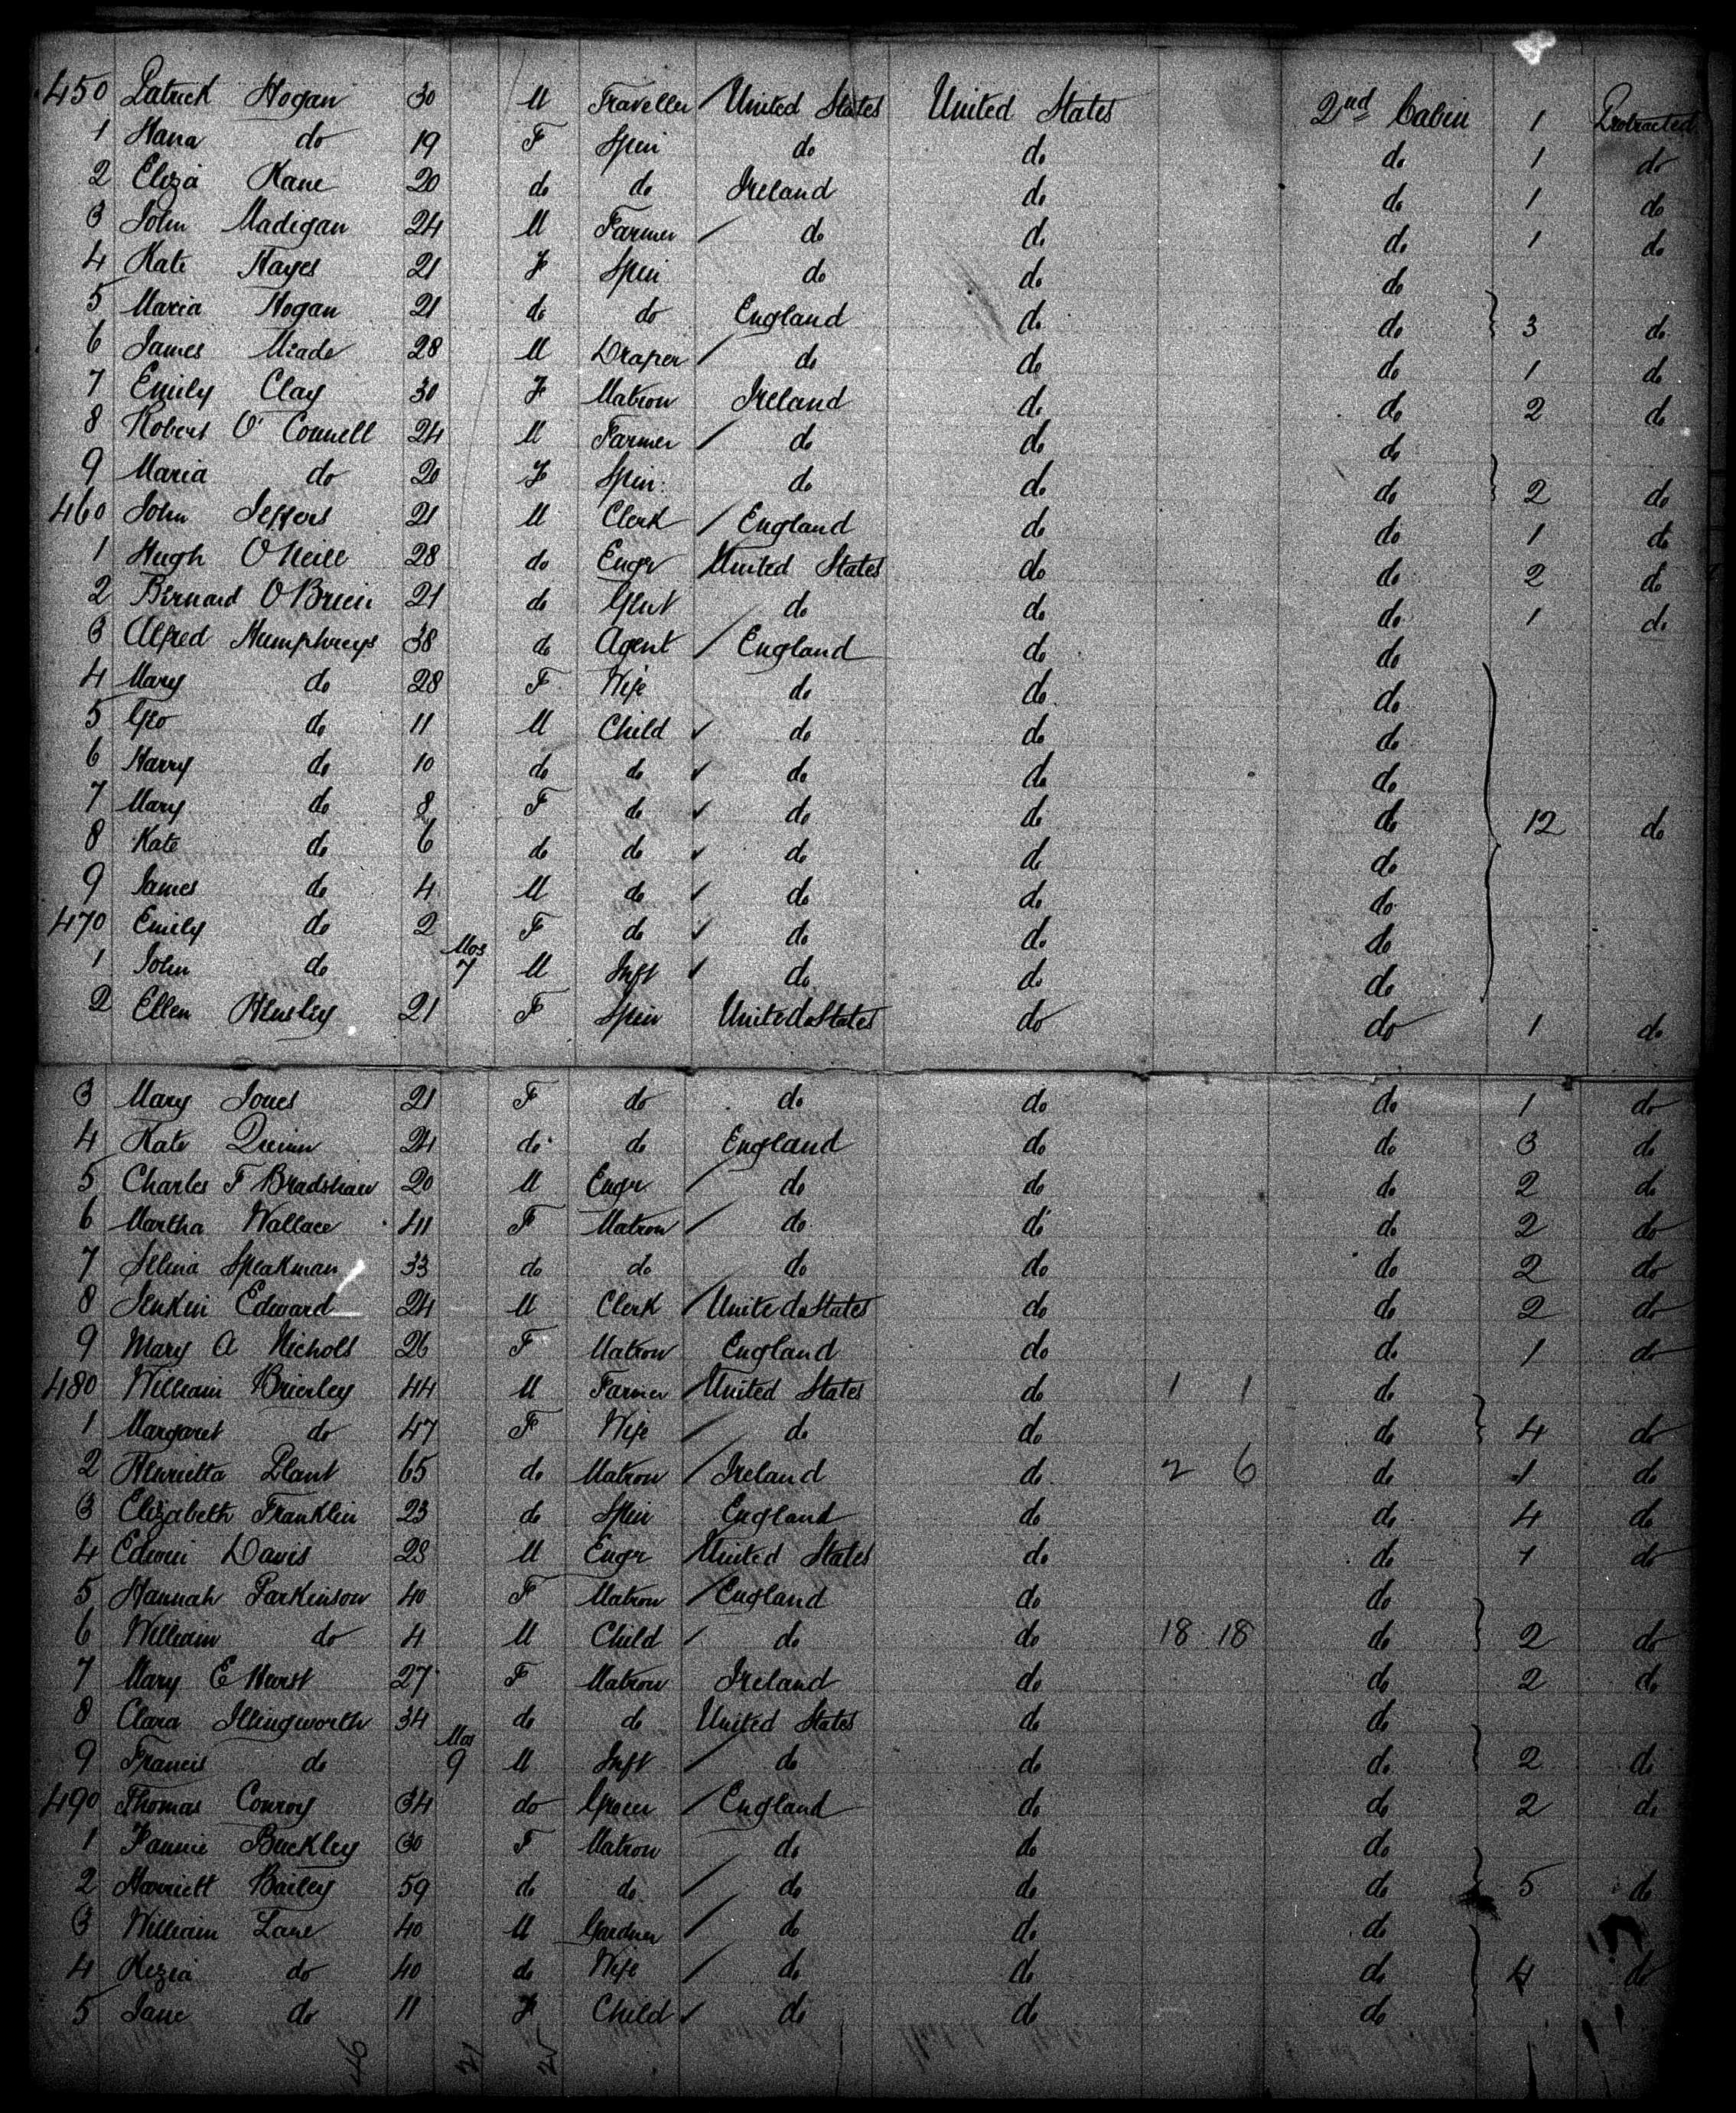 450 Patrick Hogan 30 M Traveller / United States United States 2nd Cabin 1 Protracted
1 Hana do 19 F Spin do do do 1 do
2 Eliza Kane 20 do do Ireland do do 1 do
3 John Madigan 24 M Farmer / do do do 1 do
4 Kate Hayes 21 F Spin do do do
5 Maria Hogan 21 do do England do do } 3 do
6 James Miade 28 M Draper / do do do 1 do
7 Emily Clay 30 F Matron Ireland do do 2 do
8 Robert O'Connell 24 M Farmer / do do do
9 Maria do 20 F Spin do do do } 2 do
460 John Jeffers 21 M Clerk / England do do 1 do
1 Hugh O Neill 28 do Engr United States do do 2 do
2 Bernard O Brien 21 do Gent do do do 1 do
3 Alfred Humphreys 38 do Agent / England do do
4 Mary do 28 F Wife do do do
5 Geo do 11 M Child ✓ do do do
6 Harry do 10 do do ✓ do do do
7 Mary do 8 F do ✓ do do do } 12 do
8 Kate do 6 do do ✓ do do do
9 James do 4 M do ✓ do do do
470 Emily do 2 F do ✓ do do do
1 John do Mos 7 M Inft ✓ do do do
2 Ellen Hensley 21 F Spin United States do do 1 do
3 Mary Jones 21 F do do do do 1 do
4 Kate Quinn 24 do do England do do 3 do
5 Charles F Bradshaw 20 M Engr / do do do 2 do
6 Martha Wallace 41 F Matron / do do do 2 do
7 Selina Speakman 33 do do do do do 2 do
8 Jenkin Edward 24 M Clerk / United States do do 2 do
9 Mary A Nichols 26 F Matron England do do 1 do
480 William Brierley 44 M Farmer / United States do 1 1 do
1 Margaret do 47 F Wife / do do do } 4 do
2 Henrietta Plant 65 do Matron / Ireland do 2 6 do 1 do
3 Elizabeth Franklin 23 do Spin England do do 4 do
4 Edwin Davis 28 M Engr United States do do 1 do
5 Hannah Parkinson 40 F Matron / England do do
6 William do 4 M Child / do do 18 18 do } 2 do
7 Mary E Hurst 27 F Matron Ireland do do 2 do
8 Clara Illingworth 34 do do United States do do
9 Francis do Mos 9 M Inft / do do do } 2 do
490 Thomas Conroy 34 do Grocer / England do do 2 do
1 Fannie Buckley 30 F Matron do do do
2 Harriett Bailey 59 do do / do do do } 5 do
3 William Lane 40 M Gardner / do do do
4 Kezia do 40 do Wife / do do do } 4 do
5 Jane do 11 F Child ✓ do do do
46 21 25